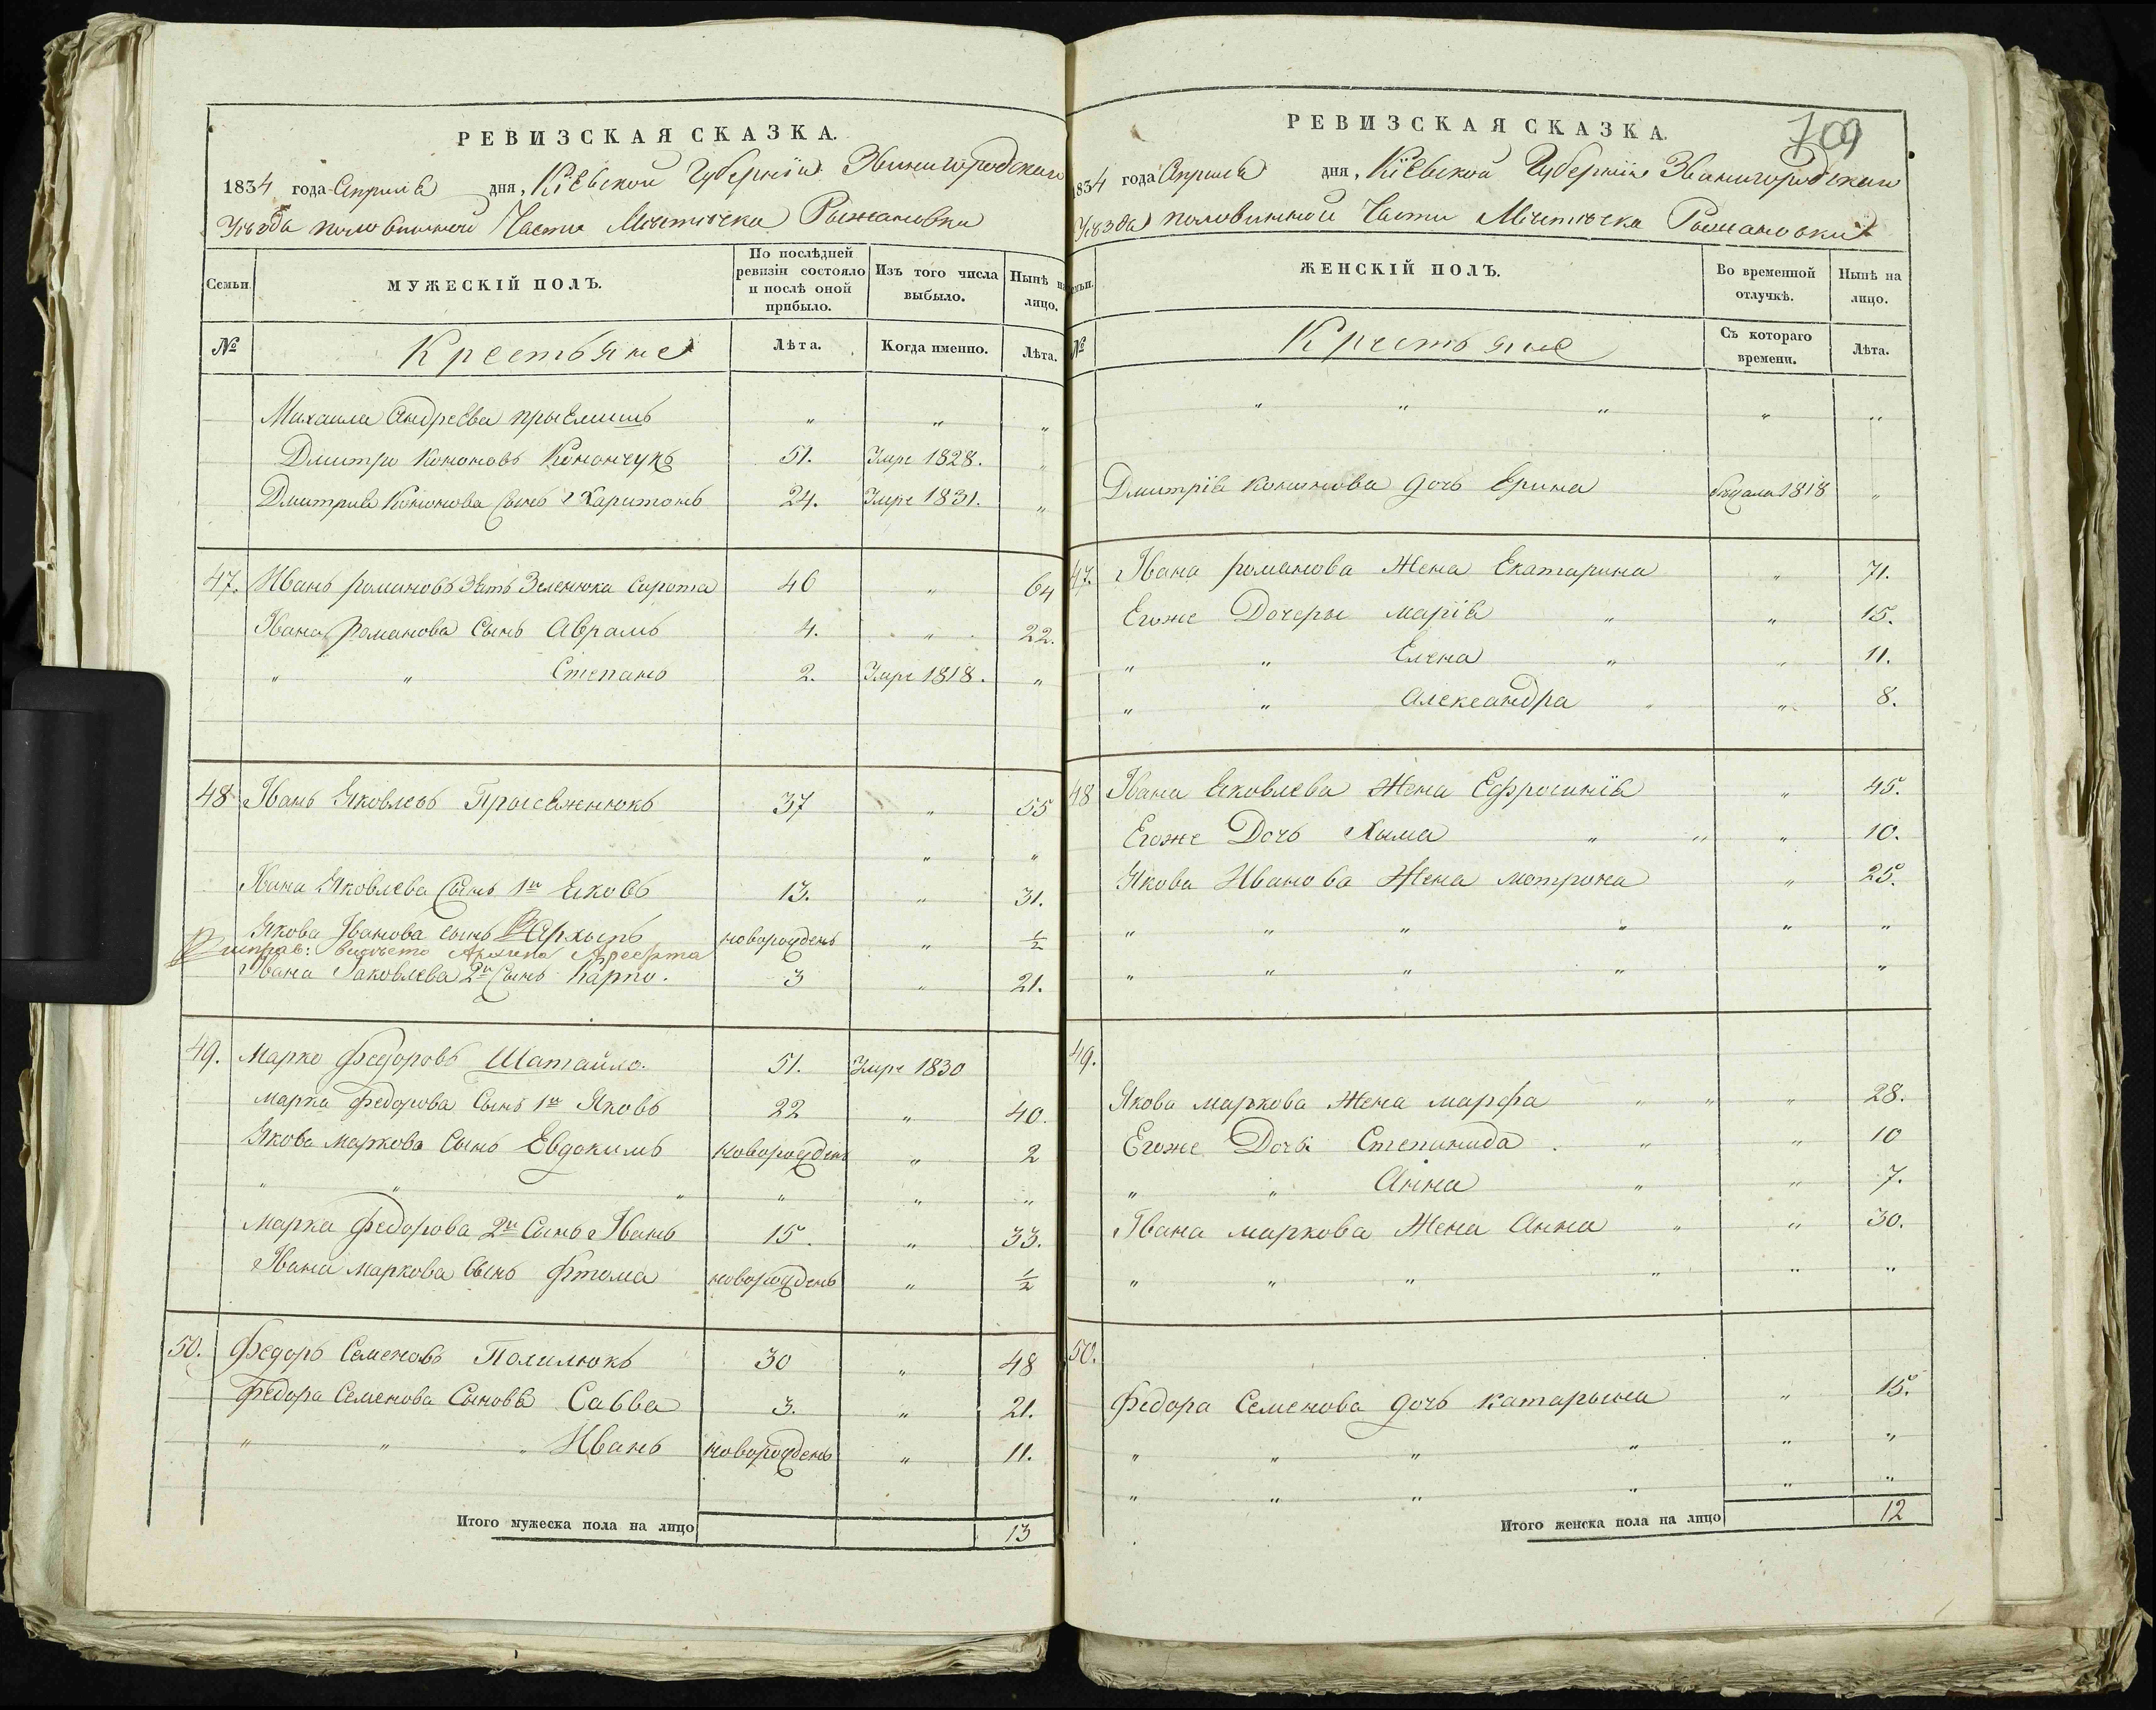 РЕВИЗСКАЯ СКАЗКА.
1834 года Априля дня, Кіевской Губерніи Звинигородскаго
Уѣзда половинной Части Мѣстѣчка Рыжановки
Семьи.
МУЖЕСКІЙ ПОЛЪ.
По послѣдней ревизіи состояло и послѣ оной прибыло.
Изъ того числа выбыло.
Нынѣ на лицо.
№
Крестьяне
Лѣта.
Когда именно.
Лѣта.
Михаила Андреева " " "
Дмитро Кононовъ Конончукъ 51. Умре 1828. "
Дмитрия Кононова Сынъ Харитонъ 24. Умре 1831. "
47. Иванъ романовъ Зять Зеленюка Сирота 46 " 64
Івана Романова Сынъ Аврамъ 4. " 22.
" " Степанъ 2. Умре 1818. "
48 Іванъ Яковлевъ 37 " 55
" "
Івана Яковлева Сынъ 1й Яковъ 13. " 31.
Якова Іванова сынъ Архыпъ новорожденъ " ½
вмѣсто Архипа
Івана Яковлева 2й Сынъ Карпо. 3 " 21.
49. Марко Федоровъ Шатайло. 51. Умре 1830
Марка Федорова Сынъ 1й Яковъ 22 " 40.
Якова Маркова Сынъ Евдокимъ новорожденъ " 2
" " " " " "
Марка Федорова 2й Сынъ Іванъ 15. " 33.
Івана Маркова Сынъ Фтома новорожденъ " ½
50. Федоръ Семеновъ Полилюкъ 30 " 48
Федора Семенова Сыновя Савва 3. " 21.
" " " Иванъ новорожденъ " 11.
Итого мужеска пола на лицо 13
709
РЕВИЗСКАЯ СКАЗКА.
1834 года Априля дня, Кіевской Губерніи Званигородскаго
Уѣзда половинной Части Мѣстѣчка Рыжановки
Семьи.
ЖЕНСКІЙ ПОЛЪ.
Во временной отлучкѣ.
Нынѣ на лицо.
№
Крестьяне
Съ котораго времени.
Лѣта.
" " " " "
Дмитрія Кононова дочь Ерина 1818 "
47. Івана романова Жена Екатарина " 71.
Егоже Дочеры марія " " 15.
" " Елена " " 11.
" " Александра " " 8.
48 Івана Яковлева Жена Ефросинія " 45.
Егоже Дочь Хыма " " " 10.
Якова Иванова Жена мотрона " 25.
" " " " " "
" " " " "
49.
Якова маркова Жена марфа " " " 28.
Егоже Дочь Степанида " " 10
" " Анна " " 7.
Івана маркова Жена Анна " " 30.
" " " " " "
50.
Федора Семенова дочь катарына " 15.
" " " " " "
" " " " " "
Итого женска пола на лицо 12